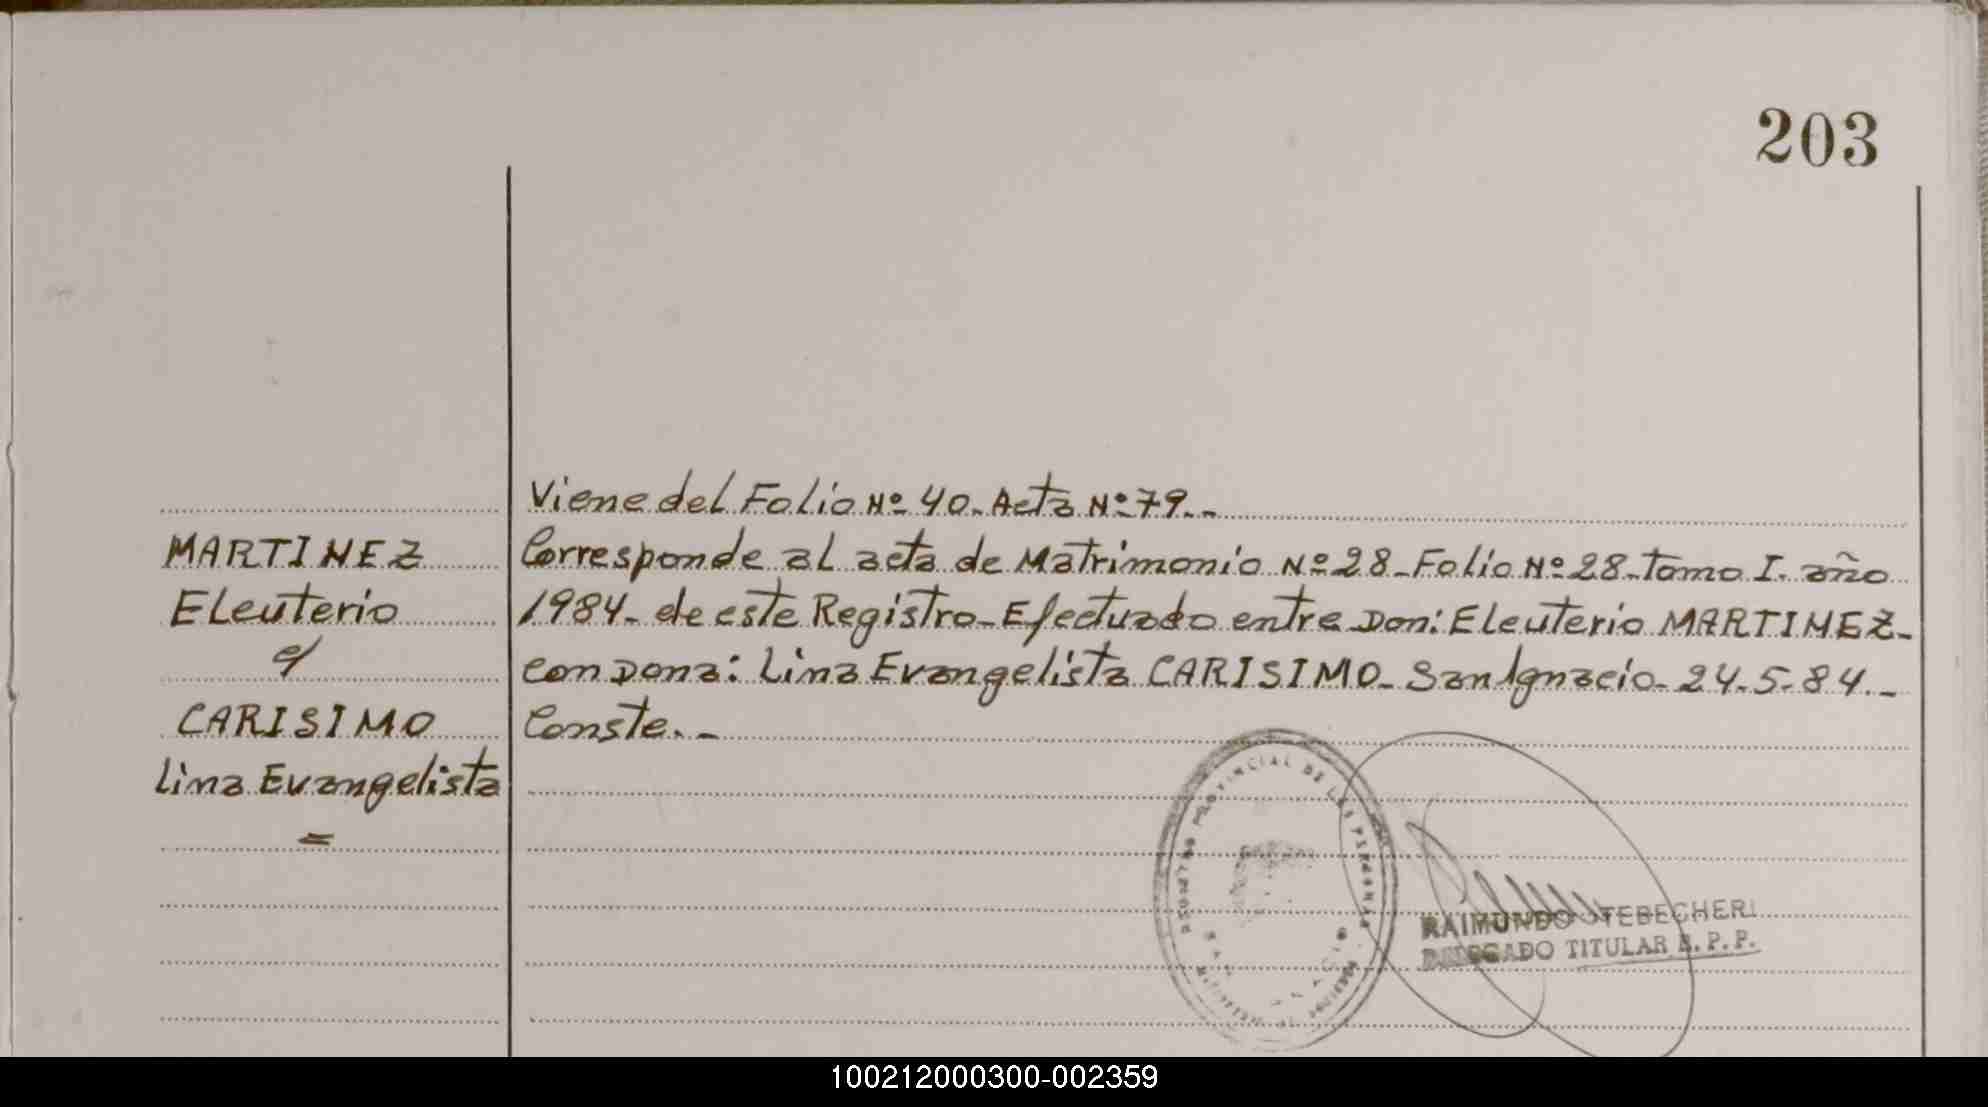 203
Viene del Folio Nº 40. Acta Nº 79.-
MARTINEZ
Eleuterio
c/
CARISIMO
Lina Evangelista
=
Corresponde al acta de Matrimonio Nº 28-Folio Nº 28-Tomo I. año
1984- de este Registro-Efectuado entre Don: Eleuterio MARTINEZ-
con Dona: Lina Evangelista CARISIMO- San Ignacio- 24-5-84.-
Conste.-
REGISTRO PROVINCIAL DE LAS PERSONAS
RAIMUNDO STEBECHERI
DELEGADO TITULAR R.P.P.
100212000300-002359